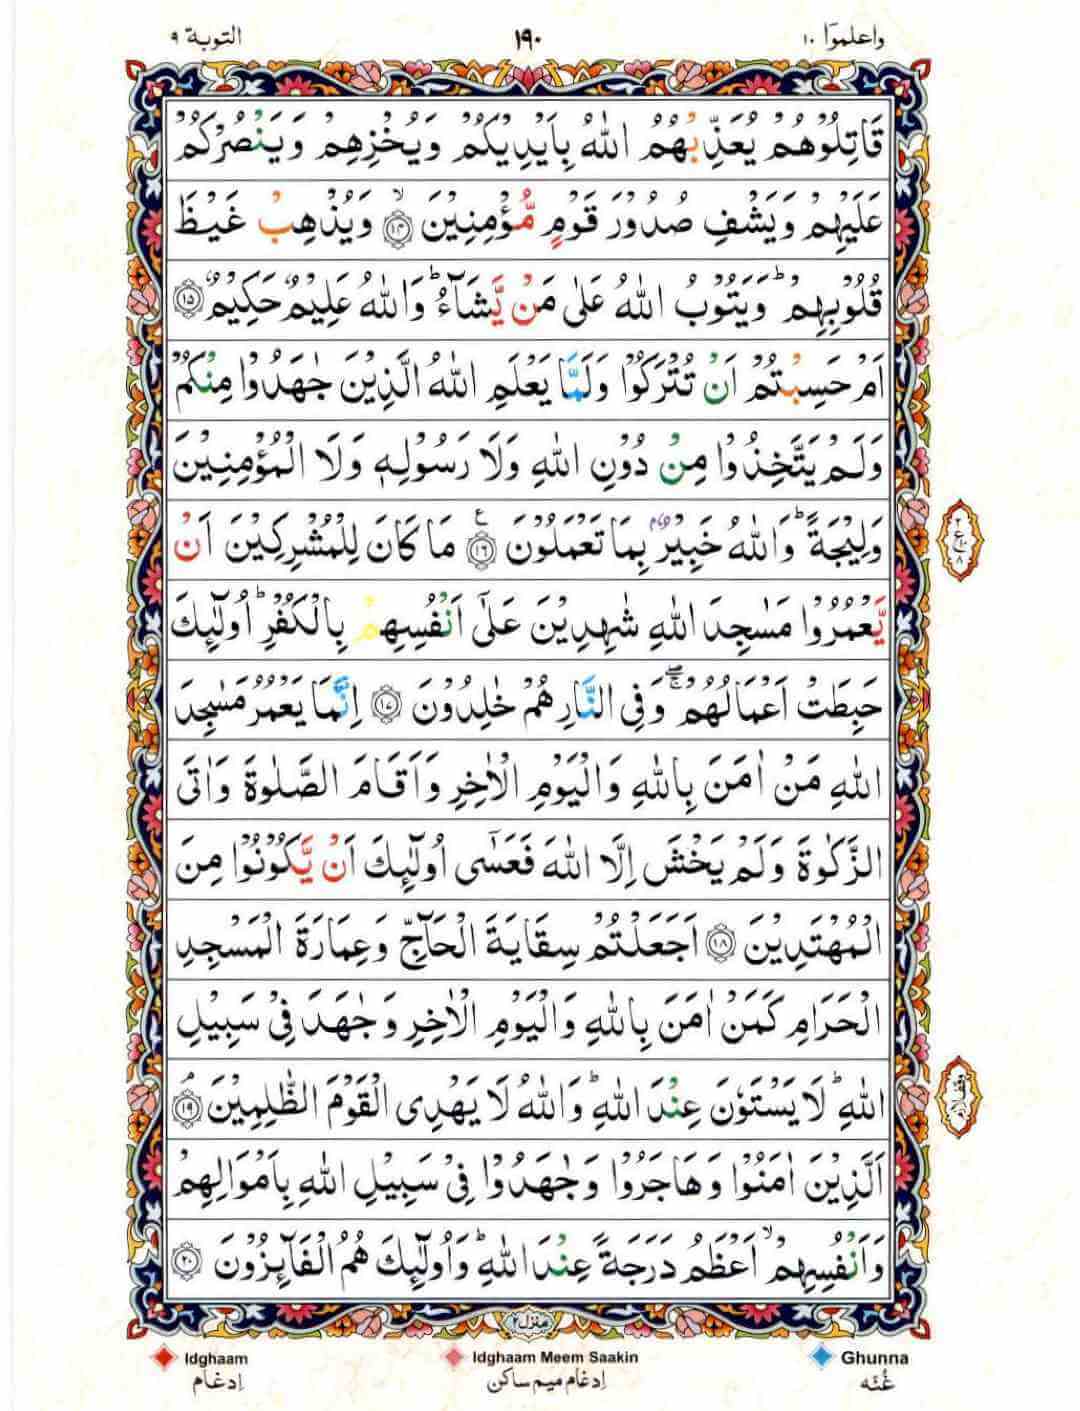 واعلموٓا ١٠
١٩٠
التوبة ٩
قَاتِلُوْهُمْ يُعَذِّبْهُمُ اللّٰهُ بِاَيْدِيْكُمْ وَيُخْزِهِمْ وَيَنْصُرْكُمْ
عَلَيْهِمْ وَيَشْفِ صُدُوْرَ قَوْمٍ مُّؤْمِنِيْنَ ۙ ١٤ وَيُذْهِبْ غَيْظَ
قُلُوْبِهِمْ ؕ وَيَتُوْبُ اللّٰهُ عَلٰى مَنْ يَّشَآءُ ؕ وَاللّٰهُ عَلِيْمٌ حَكِيْمٌ ١٥
اَمْ حَسِبْتُمْ اَنْ تُتْرَكُوْا وَلَمَّا يَعْلَمِ اللّٰهُ الَّذِيْنَ جٰهَدُوْا مِنْكُمْ
وَلَمْ يَتَّخِذُوْا مِنْ دُوْنِ اللّٰهِ وَلَا رَسُوْلِهٖ وَلَا الْمُؤْمِنِيْنَ
وَلِيْجَةً ؕ وَاللّٰهُ خَبِيْرٌۢ بِمَا تَعْمَلُوْنَ ١٦ ع مَا كَانَ لِلْمُشْرِكِيْنَ اَنْ
يَّعْمُرُوْا مَسٰجِدَ اللّٰهِ شٰهِدِيْنَ عَلٰٓى اَنْفُسِهِمْ بِالْكُفْرِ ؕ اُولٰٓئِكَ
حَبِطَتْ اَعْمَالُهُمْ ۖۚ وَفِى النَّارِ هُمْ خٰلِدُوْنَ ١٧ اِنَّمَا يَعْمُرُ مَسٰجِدَ
اللّٰهِ مَنْ اٰمَنَ بِاللّٰهِ وَالْيَوْمِ الْاٰخِرِ وَاَقَامَ الصَّلٰوةَ وَاٰتَى
الزَّكٰوةَ وَلَمْ يَخْشَ اِلَّا اللّٰهَ فَعَسٰٓى اُولٰٓئِكَ اَنْ يَّكُوْنُوْا مِنَ
الْمُهْتَدِيْنَ ١٨ اَجَعَلْتُمْ سِقَايَةَ الْحَآجِّ وَعِمَارَةَ الْمَسْجِدِ
الْحَرَامِ كَمَنْ اٰمَنَ بِاللّٰهِ وَالْيَوْمِ الْاٰخِرِ وَجٰهَدَ فِىْ سَبِيْلِ
اللّٰهِ ؕ لَا يَسْتَوٗنَ عِنْدَ اللّٰهِ ؕ وَاللّٰهُ لَا يَهْدِى الْقَوْمَ الظّٰلِمِيْنَ ۘ ١٩
اَلَّذِيْنَ اٰمَنُوْا وَهَاجَرُوْا وَجٰهَدُوْا فِىْ سَبِيْلِ اللّٰهِ بِاَمْوَالِهِمْ
وَاَنْفُسِهِمْ ۙ اَعْظَمُ دَرَجَةً عِنْدَ اللّٰهِ ؕ وَاُولٰٓئِكَ هُمُ الْفَآئِزُوْنَ ٢٠
٢
ع١٠
٨
وقف لازم
منزل ٢
Idghaam
اِدغام
Idghaam Meem Saakin
اِدغام ميم ساكن
Ghunna
غُنّه